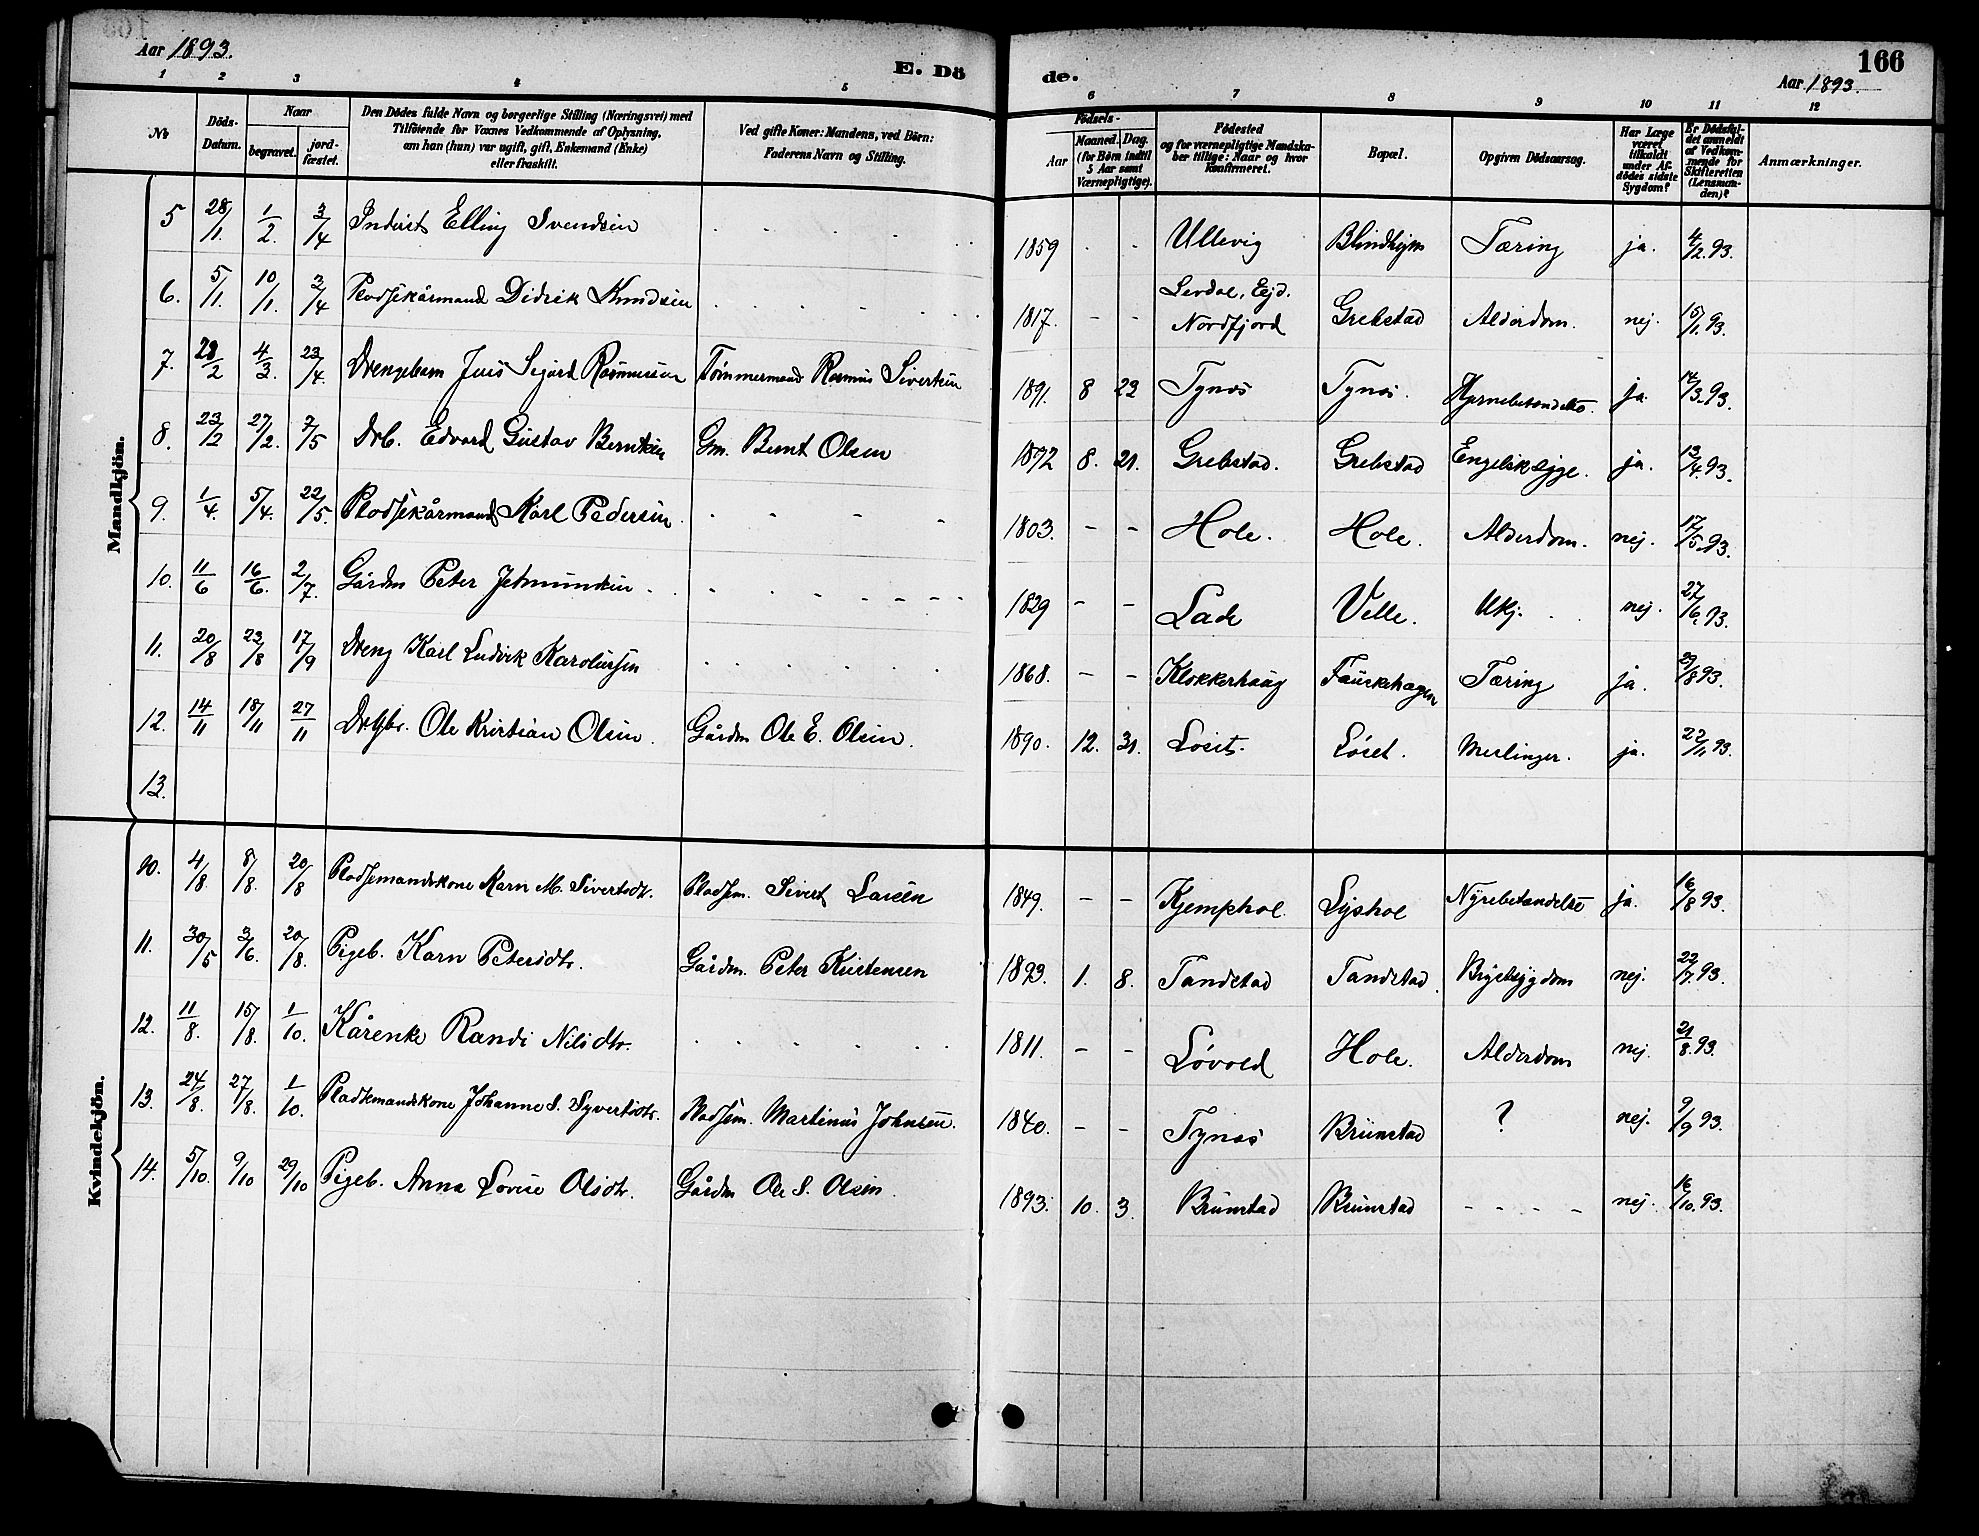 Aar 1893.
E. Dö
de.
166
Aar 1893.
1 2 3 4 5 6 7 8 9 10 11 12
No
Döds-Datum.
Naar
begravet.
jord-fæstet.
Den Dödes fulde Navn og borgerlige Stilling (Næringsvei) med
Tilföiende for Voxnes Vedkommende af Oplysning,
om han (hun) var ugift, gift, Enkemand (Enke)
eller fraskilt.
Ved gifte Koner: Mandens, ved Börn:
Faderens Navn og Stilling.
Födsels-
Aar
Maaned. Dag.
(for Börn indtil
5 Aar samt
Værnepligtige).
Födested
og for værnepligtige Mandska-
ber tillige: Naar og hvor
konfirmeret.
Bopæl.
Opgiven Dödsaarsag.
Har Læge
været
tilkaldt
under Af-
dödes sidste
Sygdom?
Er Dödsfal-
det anmeldt
af Vedkom-
mende for
Skifteretten
(Lensman-
den)?
Anmærkninger.
Mandkjön.
5 28/1. 1/2. 3/4 Inderst Elling Svendsen 1859 - - Ullevig Blindhejm Tæring ja. 4/2.93.
6. 5/1. 10/1. 3/4 Didrik Knudsen 1817. - - Nordfjord Grebstad Alderdom. nej. 15/1.93.
7. 28/2 4/3. 23/4. Drengebarn Jens Sigurd Rasmussen Tömmermand Rasmus Sivertsen 1891. 8 22 Tynes Tynes. Hjernebetændelse. ja. 14/3.93.
8. 23/2 27/2. 7/5 Drb. Edvard Gustav Berntsen Gm. Bernt Olsen 1872 8. 21. Grebstad. Grebstad Engelsksyge. ja. 13/4.93.
9. 1/4. 5/4. 22/5. Karl Pedersen 1803. - - Hole. Hole. Alderdom. nej. 17/5.93.
10. 11/6 16/6. 2/7. Gårdm Peter Jetmundsen 1829 - - Lade Velle. Ukj. nej. 27/6.93.
11. 20/8 23/8 17/9 Dreng Karl Ludvik Karolussen 1868. - - Klokkerhaug Fauskehagen Tæring ja. 29/8 93.
12. 14/11 18/11 27/11 Ole Kristian Olsen. Gårdm Ole E. Olsen. 1890. 12. 31. Löset. Löset. Meslinger. ja. 22/11 93.
13.
Kvindekjön.
10. 4/8. 8/8. 20/8 Pladsemandskone Karn M. Sivertsdtr. Pladsm. Sivert Larsen 1849. - - Kjemphol Lyshol Nyrebetændelse ja. 16/8 93.
11. 30/5 3/6. 20/8. Pigeb. Karn Petersdtr. Gårdm. Peter Kristensen 1893. 1. 8. Tandstad Tandstad. Brystsygdom nej. 22/7.93.
12. 11/8. 15/8. 1/10. Kårenke Randi Nilsdtr. 1811. - - Lövold Hole. Alderdom nej. 21/8.93.
13. 24/8. 27/8. 1/10. Pladsemandskone Johanne S. Syvertsdtr. Pladsem. Martinus Johnsen. 1840. - - Tynes Brunstad ? nej. 9/9 93.
14. 5/10. 9/10 29/10 Pigeb. Anna Lovise Olsdtr. Gårdm Ole S. Olsen. 1893. 10. 3. Brunstad Brunstad - - - - nej. 16/10.93.